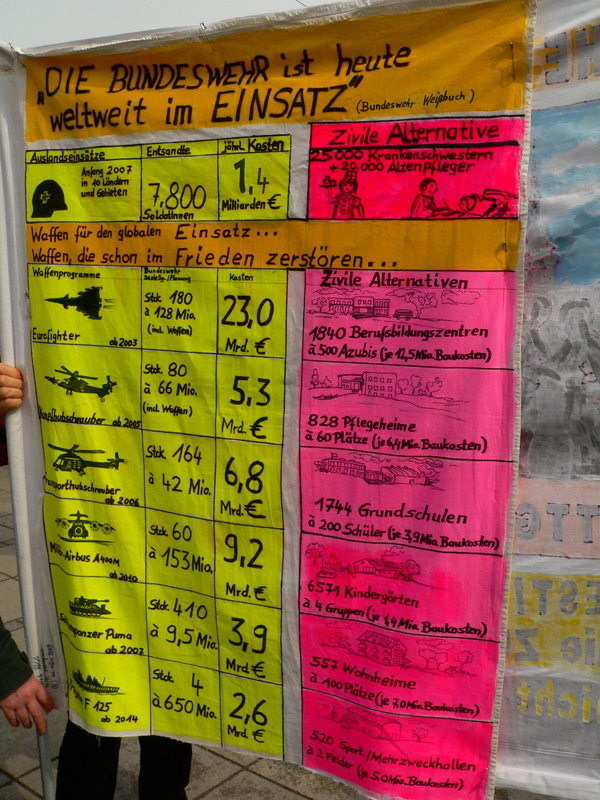 „DIE BUNDESWEHR ist heute
weltweit im EINSATZ“ (Bundeswehr Weißbuch)
Auslandseinsätze Entsandte jährl. Kosten
Anfang 2007
in 10 Ländern
und Gebieten
7,800
SoldatInnen
1,4
Milliarden €
Zivile Alternative
25.000 Krankenschwestern
+ 20.000 Altenpfleger
Waffen für den globalen Einsatz...
Waffen, die schon im Frieden zerstören...
Waffenprogramme Bundeswehr Kosten
Zivile Alternativen
Eurofighter ab 2003
Stck 180
à 128 Mio.
(incl. Waffen)
23,0
Mrd. €
1840 Berufsbildungszentren
à 500 Azubis (je 12,5 Mio. Baukosten)
ab 2005
Stck. 80
à 66 Mio.
(incl. Waffen)
5,3
Mrd. €
828 Pflegeheime
à 60 Plätze (je 6,4 Mio. Baukosten)
ab 2006
Stck 164
à 42 Mio.
6,8
Mrd. €
1744 Grundschulen
à 200 Schüler (je 3,9 Mio. Baukosten)
Airbus A400M
ab 2010
Stck 60
à 153 Mio.
9,2
Mrd. €
6571 Kindergärten
à 4 Gruppen (je 1,4 Mio. Baukosten)
panzer Puma
ab 2007
Stck. 410
à 9,5 Mio.
3,9
Mrd. €
557 Wohnheime
à 100 Plätze (je 7,0 Mio. Baukosten)
F 125
ab 2014
Stck. 4
à 650 Mio.
2,6
Mrd. €
520 Sport/Mehrzweckhallen
à 2 Felder (je 5,0 Mio. Baukosten)